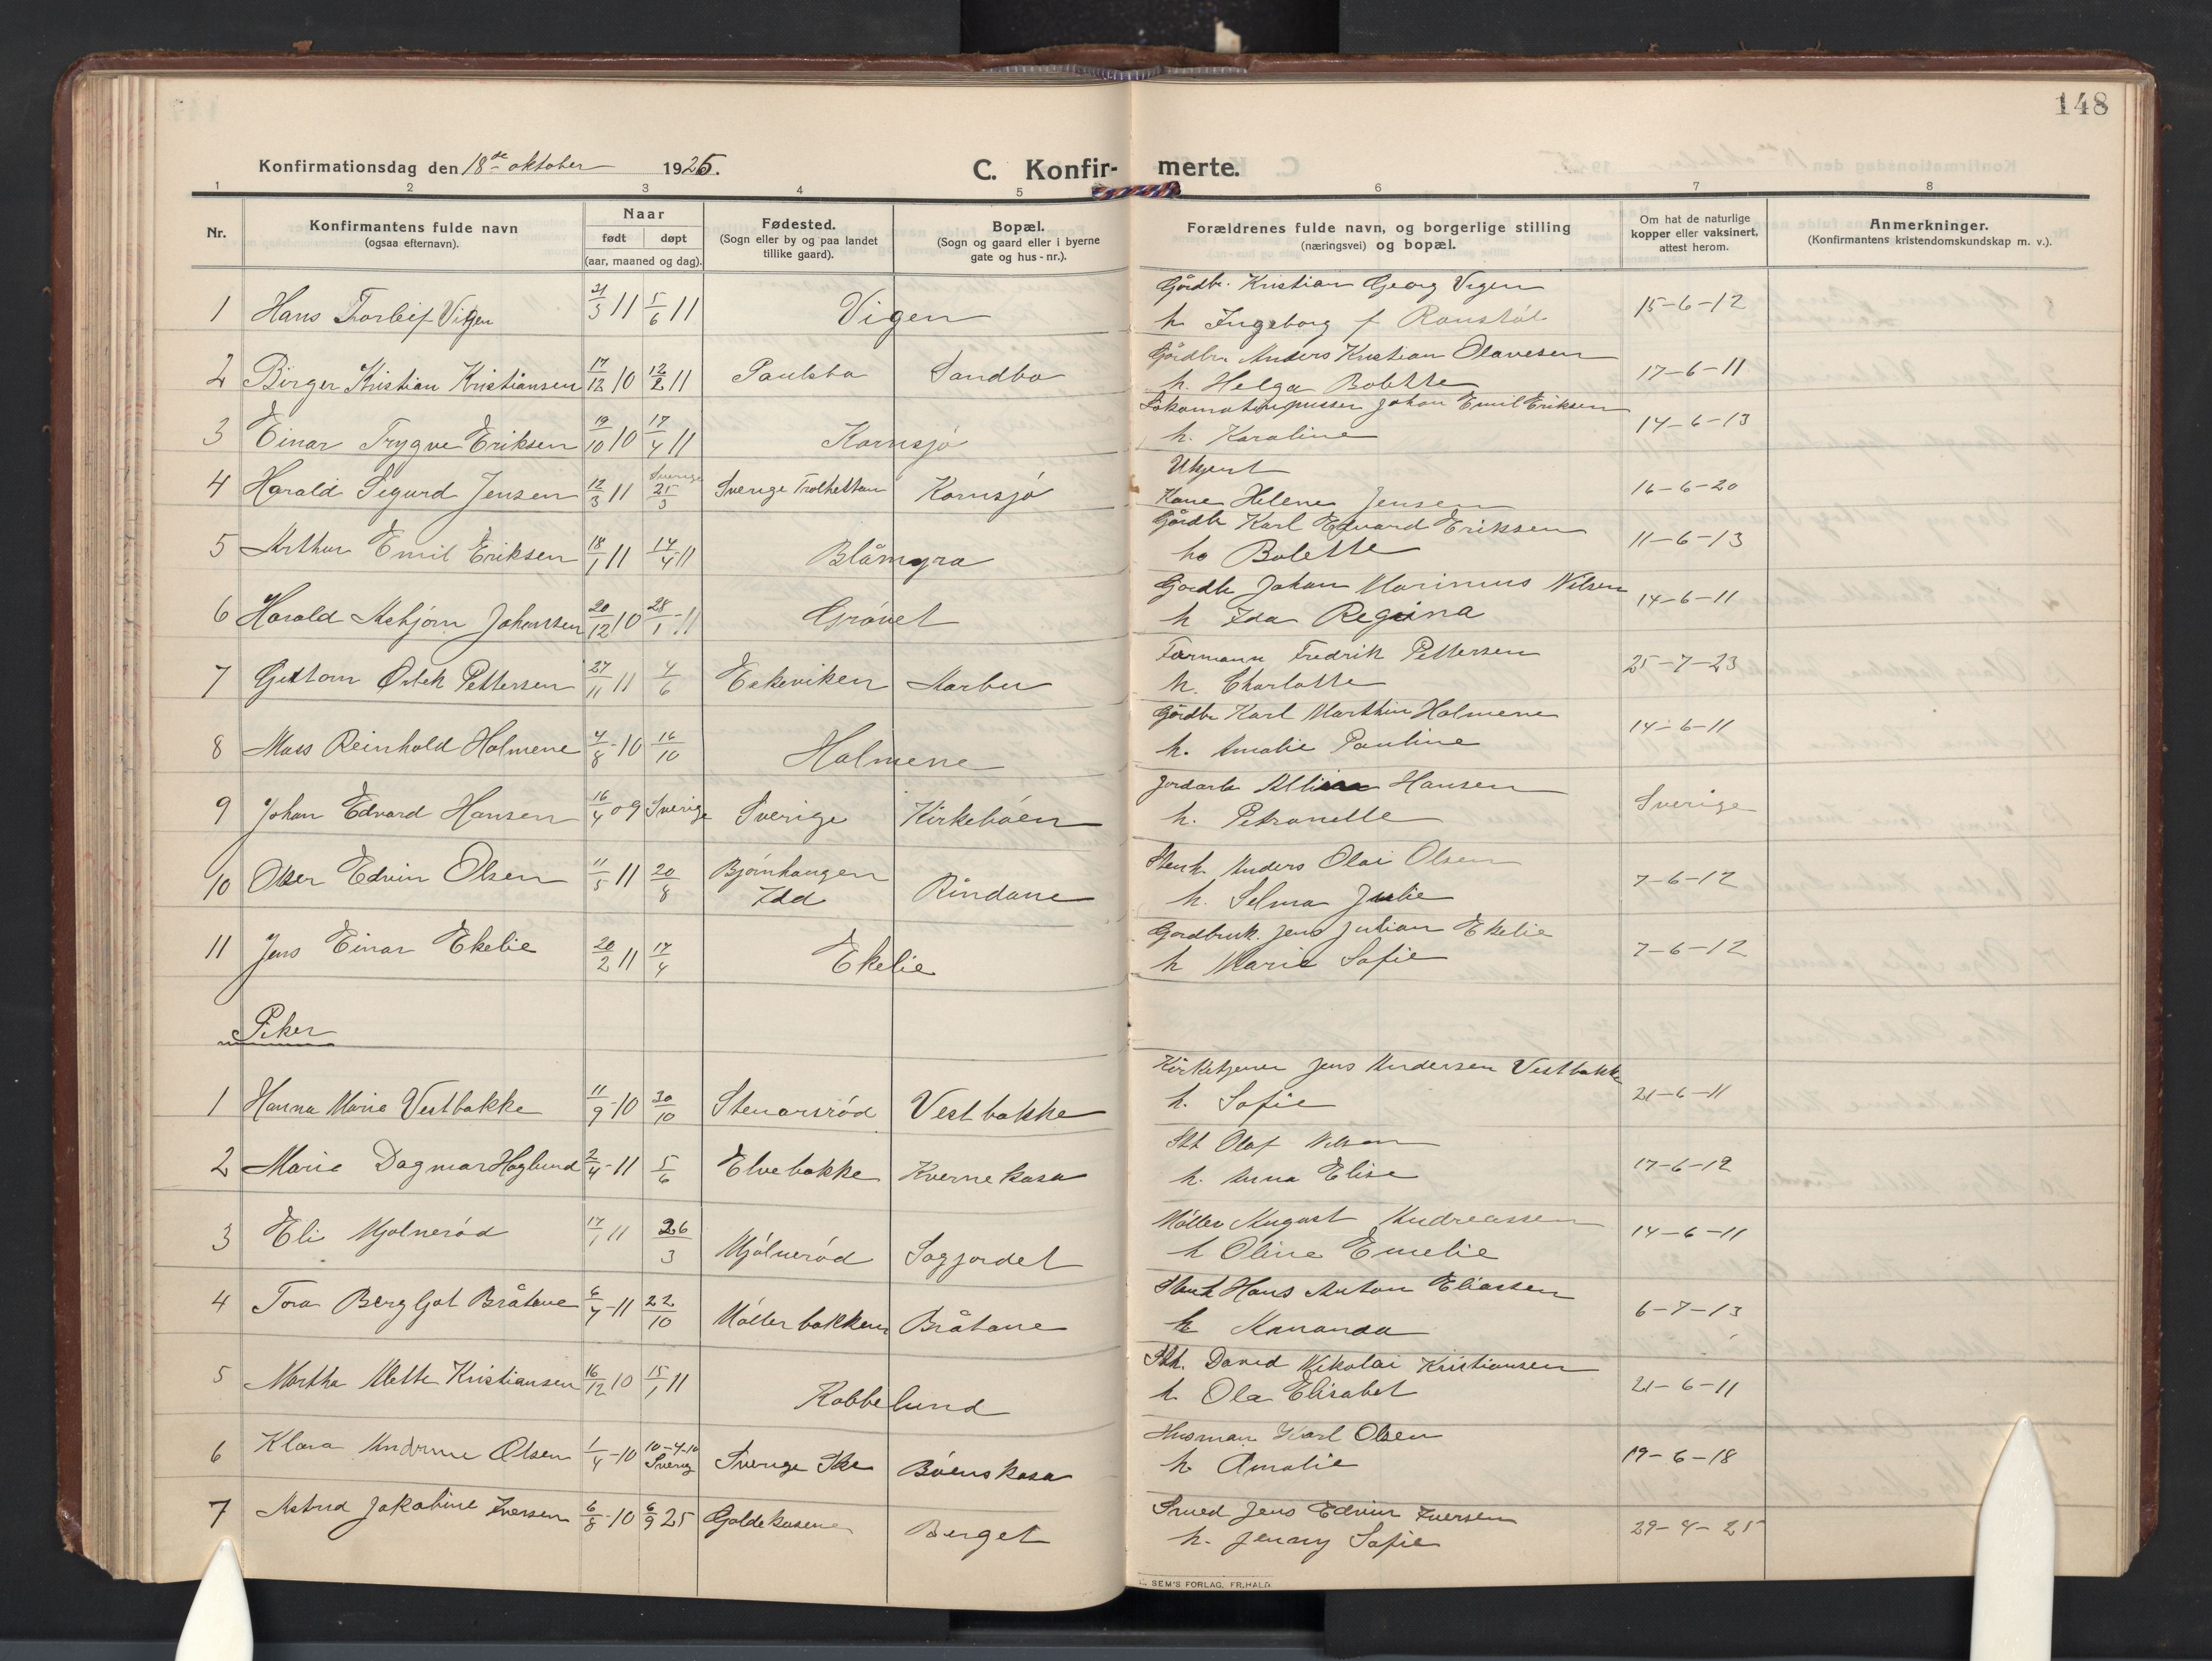 148
Konfirmationsdag den 18de oktober 1925.
C. Konfir- merte.
1 2 3 4 5 6 7 8
Nr.
Konfirmantens fulde navn
(ogsaa efternavn).
Naar
født døpt
(aar, maaned og dag).
Fødested.
(Sogn eller by og paa landet
tillike gaard).
Bopæl.
(Sogn og gaard eller i byerne
gate og hus-nr.).
Forældrenes fulde navn, og borgerlige stilling
(næringsvei) og bopæl.
Om hat de naturlige
kopper eller vaksinert,
attest herom.
Anmerkninger.
(Konfirmantens kristendomskundskap m. v.).
Gårdbr. Kristian Georg Vigen
1 Hans Torleif Vigen 21/3 11 5/6 11 Vigen 15-6-12
h. Ingeborg f
Gårdbr. Anders Kristian Olavesen
2 Birger Kristian Kristiansen 17/12 10 12/2 11 Paulsbo Sandbo 17-6-11
h. Helga Bolette
Lokomotivpusser Johan Emil Eriksen
3 Einar Trygve Eriksen 19/10 10 17/4 11 Kornsjø 14-6-13
h. Karoline
Ukjent
4 Harald Sigurd Jensen 12/3 11 Sverige 25/3 Sverige Trolhettan Kornsjø 16-6-20
Kone Helene Jensen
Gårdbr Karl Edvard Eriksen
5 Arthur Emil Eriksen 18/1 11 14/4-11 Blåmyra 11-6-13
h. Bolette
Gardbr Johan Marinius Nilsen
6 Harald Asbjørn Johanssen 20/12 10 28/1-11 Grønet 14-6-11
h Ida Regina
Formann Fredrik Pettersen
7 Pettersen 27/11 11 4/6 Eskeviken Aarbu 25-7-23
h. Charlotte
Gårdbr Karl Marthin Holmene
8 Reinhold Holmene 4/8-10 16/10 Holmene 14-6-11
h. Amalie Pauline
Jordarb Hansen
9 Johan Edvard Hansen 16/4 09 Sverige Sverige Kirkebøen Sverige
h. Petronelle
Stenh. Anders Olai Olsen
10 Edvin Olsen 11/5 11 20/8 Bjørnhaugen Idd Rindane 7-6-12
h. Selma Julie
Gardbruk. Jens Julian Ekelie
11 Jens Einar Ekelie 20/2 11 17/4 Ekelie 7-6-12
h Marie Sofie
Piker
Kirketjener Jens Andersen Vestbakke
1 Hanna Marie Vestbakke 11/9-10 30/10 Stenarsrød Vestbakke 21-6-11
h. Sofie
Sth Olaf Nilsen
2 Marie Dagmar Høglund 2/4-11 5/6 Elvebakke Kvernekasa 17-6-12
h. Anna Elise
Møller August Andreassen
3 Eli Mjølnerød 17/1 11 26/3 Mjølnerød Sagjordet 14-6-11
h Oline Emelie
Stenh Hans Anton Eliassen
4 Tora Bergljot Bråtane 6/7-11 22/10 Møllerbakken Bråtane 6-7-13
h Amanda
Sth. David Nikolai Kristiansen
5 Martha Mette Kristiansen 16/12 10 15/1 11 Kabbelund 21-6-11
h Ola Elisabet
Husman Karl Olsen
6 Klara Andrine Olsen 1/4-10 10-4-10 Sverig Sverige Ske Bøenskasa 19-6-18
h. Amalie
Smed Jens Edvin Iversen
7 Astrid Jakobine Iversen 6/8-10 6/9 25 Goldekasene Berget 29-4-25
h. Jenny Sofie
SEM'S FORLAG, FR.HALD.